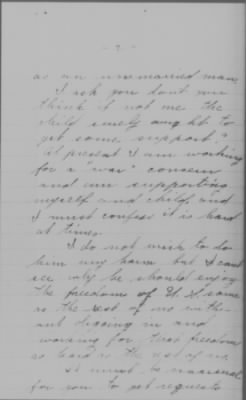 - 2 -
as an unmarried man.
I ask you don't you
think if not me the
child surely ought to
get some support?
At present I am working
for a "war" concern
and am supporting
myself and child, and
I must confess it is hard
at times.
I do not wish to do
him any harm but I cant
see why he should enjoy
the freedom of U.S. same
as the rest of us with-
out digging in and
working for that freedom
as hard as the rest of us.
It must be unusual
for you to get requests